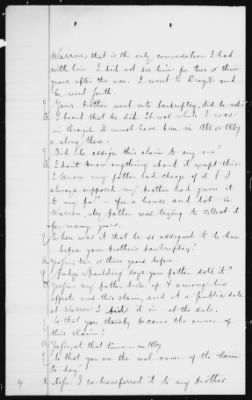 Warren, that is the only conversation I had
with him. I did not see him for two or three
years after the war. I went to Brazil and
he went south.
Q Your brother went into bankruptcy, did he not?
A I heard that he did. It was while I was
in Brazil. It must have been in 1866 or 1867
or along there.
Q Did he assign this claim to any one?
A I don't know anything about it except this:
I know my father had charge of it & I
always supposed my brother had given it
to my father for a house and lot in
Warren. My father was trying to collect it
for many years.
Q When was it that he so assigned it to him
before your brother's bankruptcy?
A Yes sir, two or three years before.
Q Judge Spaulding says your father sold it?
A Yes sir, my father broke up & among his
effects was this claim, and at a public sale
at Warren I bid it in at the sale.
Q So that you thereby became the owner of
this claim?
A Yes sir, at that time, in 1867.
Q So that you are the real owner of the claim
to day?
A No sir. I re-transferred it to my brother